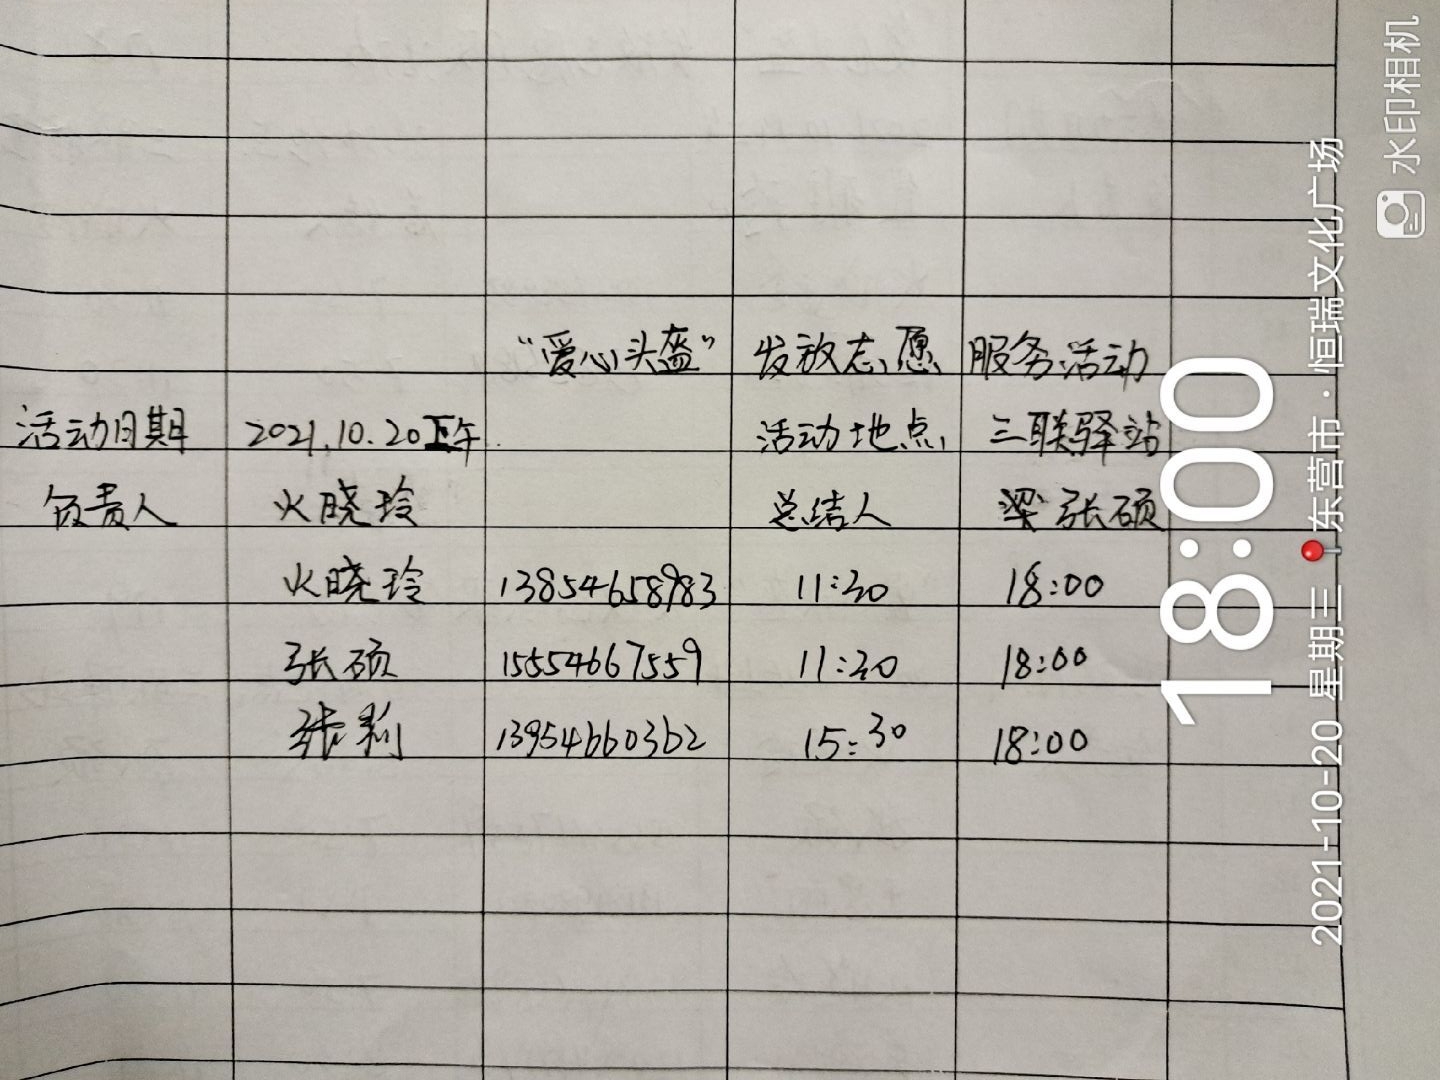 “爱心头盔”发放志愿服务活动
活动日期 2021.10.20下午 活动地点 三联驿站
负责人 火晓玲 总结人 张硕
火晓玲 13854658983 11:30 18:00
张硕 15554667559 11:30 18:00
张莉 13954660362 15:30 18:00
18:00
2021-10-20 星期三 东营市·恒瑞文化广场
水印相机